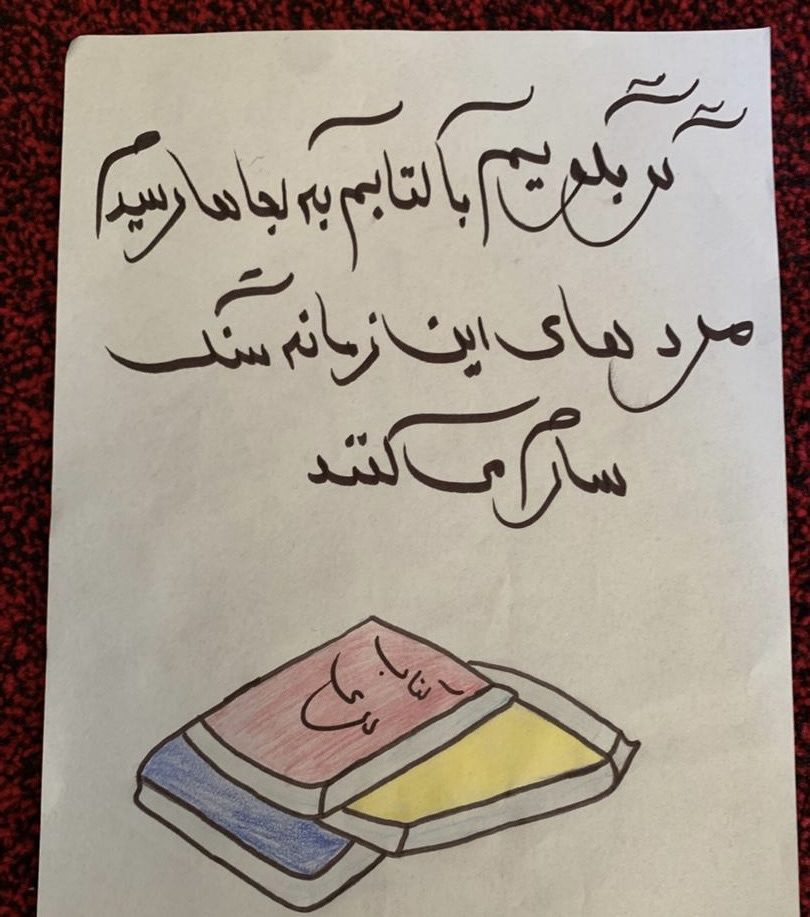 گر بگویم با کتابم به کجاها رسیدم
مردهای این زمانه سنگ
سارم می کنند
کتاب
های